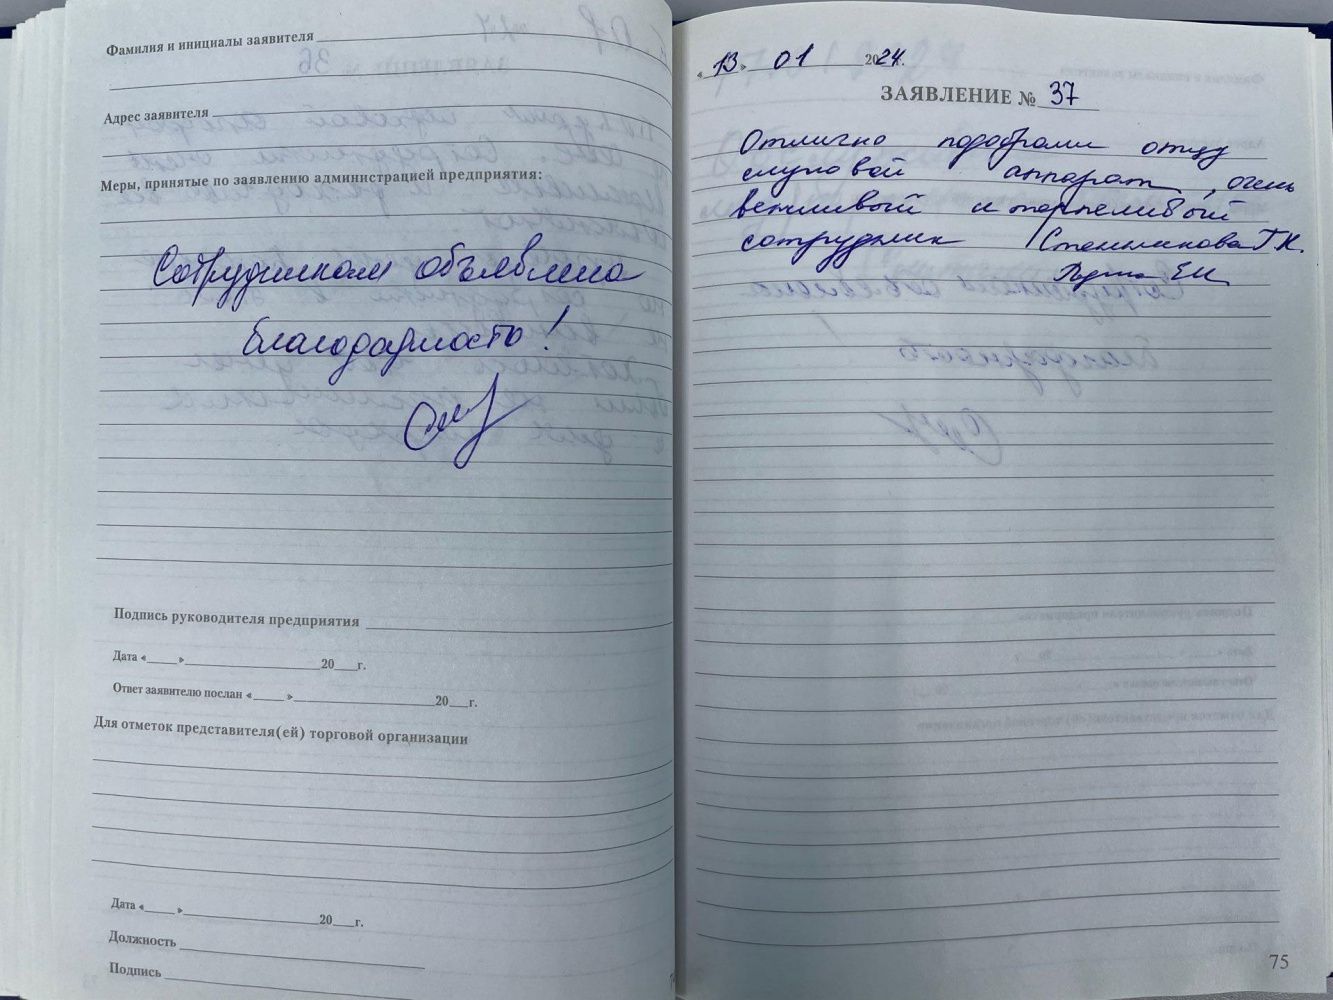 Фамилия и инициалы заявителя
Адрес заявителя
Меры, принятые по заявлению администрацией предприятия:
Сотрудникам объявлена
благодарность!
Подпись руководителя предприятия
Дата «____»____________20___г.
Ответ заявителю послан «____»____________20___г.
Для отметок представителя(ей) торговой организации
Дата «____»____________20___г.
Должность
Подпись
«13» 01 2024г.
ЗАЯВЛЕНИЕ № 37
Отлично подобрали отцу
слуховой аппарат, очень
вежливый и терпеливый
сотрудник Г.К.
Е.И.
75